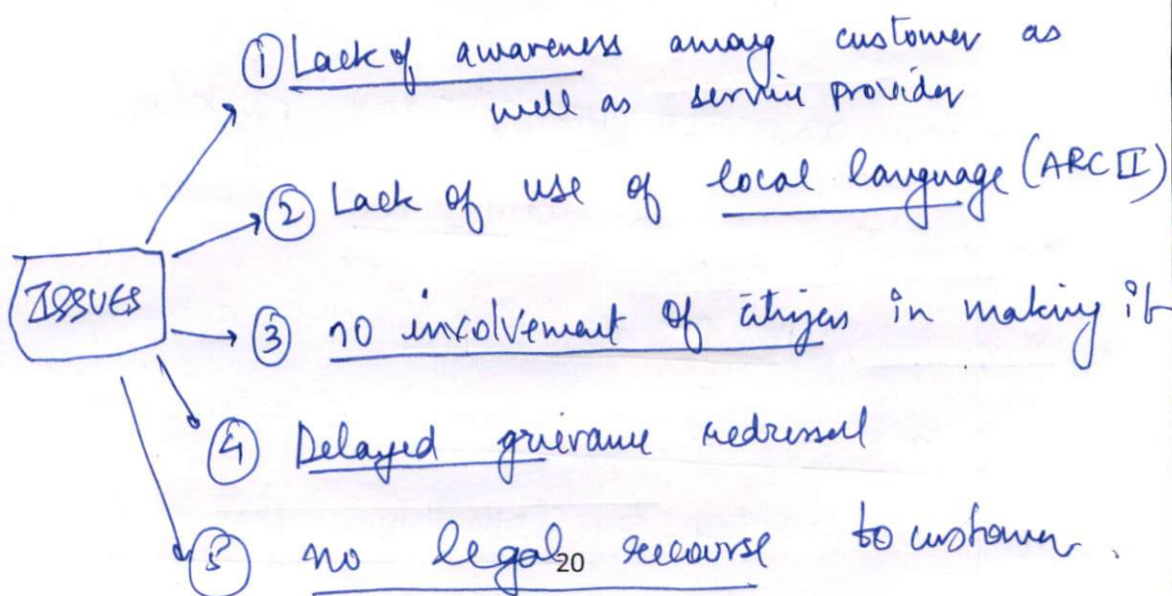 ① Lack of awareness among customer as
well as service provider
② Lack of use of local language (ARC II)
ISSUES
③ no involvement of citizens in making it
④ Delayed grievance redressal
⑤ no legal recourse to customer.
20